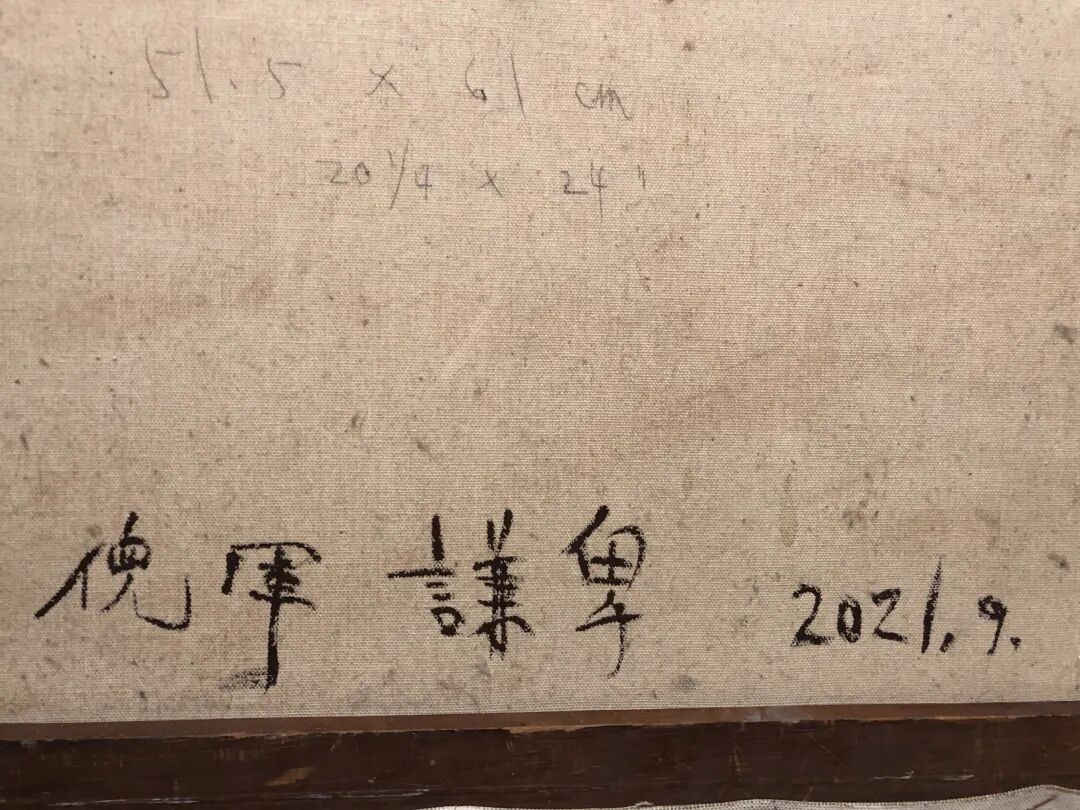 51.5 x 61 cm
20 1/4 x 24"
倪軍 謙卑 2021.9.